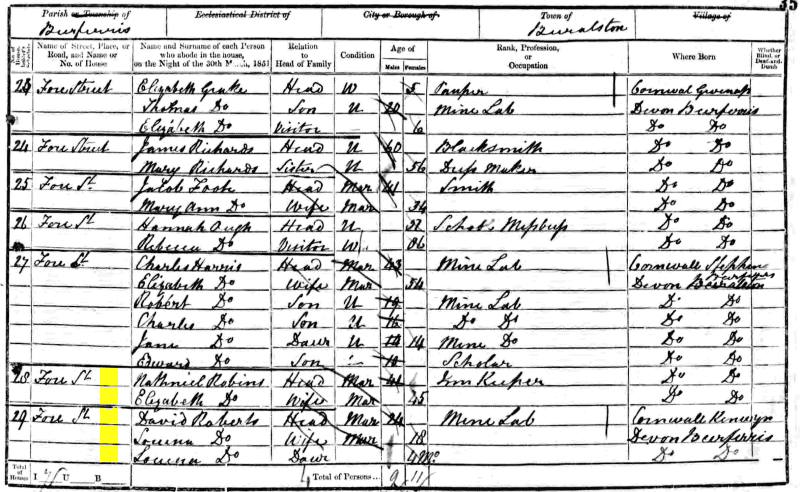 35
Parish or Township of Ecclesiastical District of City or Borough of Town of Village of
Beerferris Beeralston
No. of House Name of Street, Place, or Road, and Name or No. of House Name and Surname of each Person who abode in the house, on the Night of the 30th March, 1851 Relation to Head of Family Condition Age of Males Females Rank, Profession, or Occupation Where Born Whether Blind, or Deaf-and-Dumb
23 Fore Street Elizabeth Head W 5 Pauper Cornwal Gwennap
Thomas Do Son U 20 Mine Lab Devon Beerferris
Elizabeth Do Visitor 6 Do Do
24 Fore Street James Richards Head U 60 Blacksmith Do Do
Mary Richards Sister U 56 Dress Maker Do Do
25 Fore St Jacob Foot Head Mar 41 Smith Do Do
Mary Ann Do Wife Mar 34 Do Do
26 Fore St Hannah Head U Do Do
Rebecca Do Visitor W 86 Do Do
27 Fore St Charles Harris Head Mar 43 Mine Lab Cornwall Stephens
Elizabeth Do Wife Mar 54 Devon
Robert Do Son U Mine Lab Do Do
Charles Do Son U Do Do Do Do
Jane Do Daur U 14 Mine Do Do Do
Edward Do Son Scholar Do Do
28 Fore St Nathniel Robins Head Mar 41 Inn Keeper Do Do
Elizabeth Do Wife Mar 45 Do Do
29 Fore St David Roberts Head Mar 24 Mine Lab Cornwall Kenwyn
Do Wife Mar 18 Devon Beerferris
Do Daur 4 Mo Do Do
Total of Houses I 7 U B Total of Persons 9 11